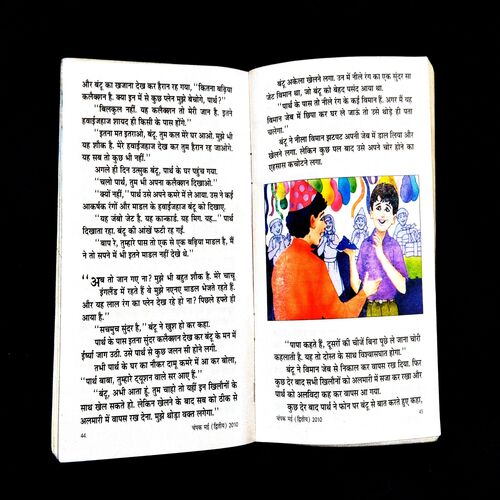 और बंटू का खजाना देख कर हैरान रह गया, ‘‘कितना बढ़िया
कलैक्शन है. क्या इन में से कुछ प्लेन मुझे बेचोगे, पार्थ?’’
‘‘बिलकुल नहीं. यह कलैक्शन तो मेरी जान है. इतने
हवाईजहाज शायद ही किसी के पास होंगे.
‘‘इतना मत इतराओ, बंटू. तुम कल मेरे घर आओ. मुझे भी
यह शौक है. मेरे हवाईजहाज देख कर तुम हैरान रह जाओगे.
यह सब तो कुछ भी नहीं.’’
अगले ही दिन उत्सुक बंटू, पार्थ के घर पहुंच गया.
‘‘चलो पार्थ, तुम भी अपना कलैक्शन दिखाओ.’’
‘‘क्यों नहीं,’’ पार्थ उसे अपने कमरे में ले आया. उस ने कई
आकर्षक रंगों और माडल के हवाईजहाज बंटू को दिखाए.
‘‘यह जंबो जेट है. यह कानकार्ड. यह मिग. यह...’’ पार्थ
दिखाता रहा. बंटू की आंखें फटी रह गईं.
‘‘बाप रे, तुम्हारे पास तो एक से एक बढ़िया माडल है, मैं
ने तो सपने में भी इतने माडल नहीं देखे थे.’’
‘‘अब तो जान गए ना? मुझे भी बहुत शौक है. मेरे चाचू
इंगलैंड में रहते हैं वे मुझे नएनए माडल भेजते रहते हैं.
और यह लाल रंग का प्लेन देख रहे हो ना? पिछले हफ्ते ही
आया है.’’
‘‘सचमुच सुंदर है,’’ बंटू ने खुश हो कर कहा.
पार्थ के पास इतना सुंदर कलैक्शन देख कर बंटू के मन में
ईर्ष्या जाग उठी. उसे पार्थ से कुछ जलन सी होने लगी.
तभी पार्थ के घर का नौकर दामू कमरे में आ कर बोला,
‘‘पार्थ बाबा, तुम्हारे ट्यूशन वाले सर आए हैं.’’
‘‘बंटू, अभी आता हूं. तुम चाहो तो यहीं इन खिलौनों के
साथ खेल सकते हो. लेकिन खेलने के बाद सब को ठीक से
अलमारी में वापस रख देना. मुझे थोड़ा वक्त लगेगा.’’
44
चंपक मई (द्वितीय) 2010
बंटू अकेला खेलने लगा. उन में नीले रंग का एक सुंदर सा
जेट विमान था, जो बंटू को बेहद पसंद आया था.
‘‘पार्थ के पास तो नीले रंग के कई विमान हैं. अगर मैं यह
विमान जेब में छिपा कर घर ले जाऊं तो उसे थोड़े ही पता
चलेगा.’’
बंटू ने नीला विमान झटपट अपनी जेब में डाल लिया और
खेलने लगा. लेकिन कुछ पल बाद उसे अपने चोर होने का
एहसास कचोटने लगा.
‘‘पापा कहते हैं, दूसरों की चीजें बिना पूछे ले जाना चोरी
कहलाती है. यह तो दोस्त के साथ विश्वासघात होगा.’’
बंटू ने विमान जेब से निकाल कर वापस रख दिया. फिर
कुछ देर बाद सभी खिलौनों को अलमारी में सजा कर रखा और
पार्थ को अलविदा कह कर वापस आ गया.
कुछ देर बाद पार्थ ने फोन पर बंटू से बात करते हुए कहा,
चंपक मई (द्वितीय) 2010
45